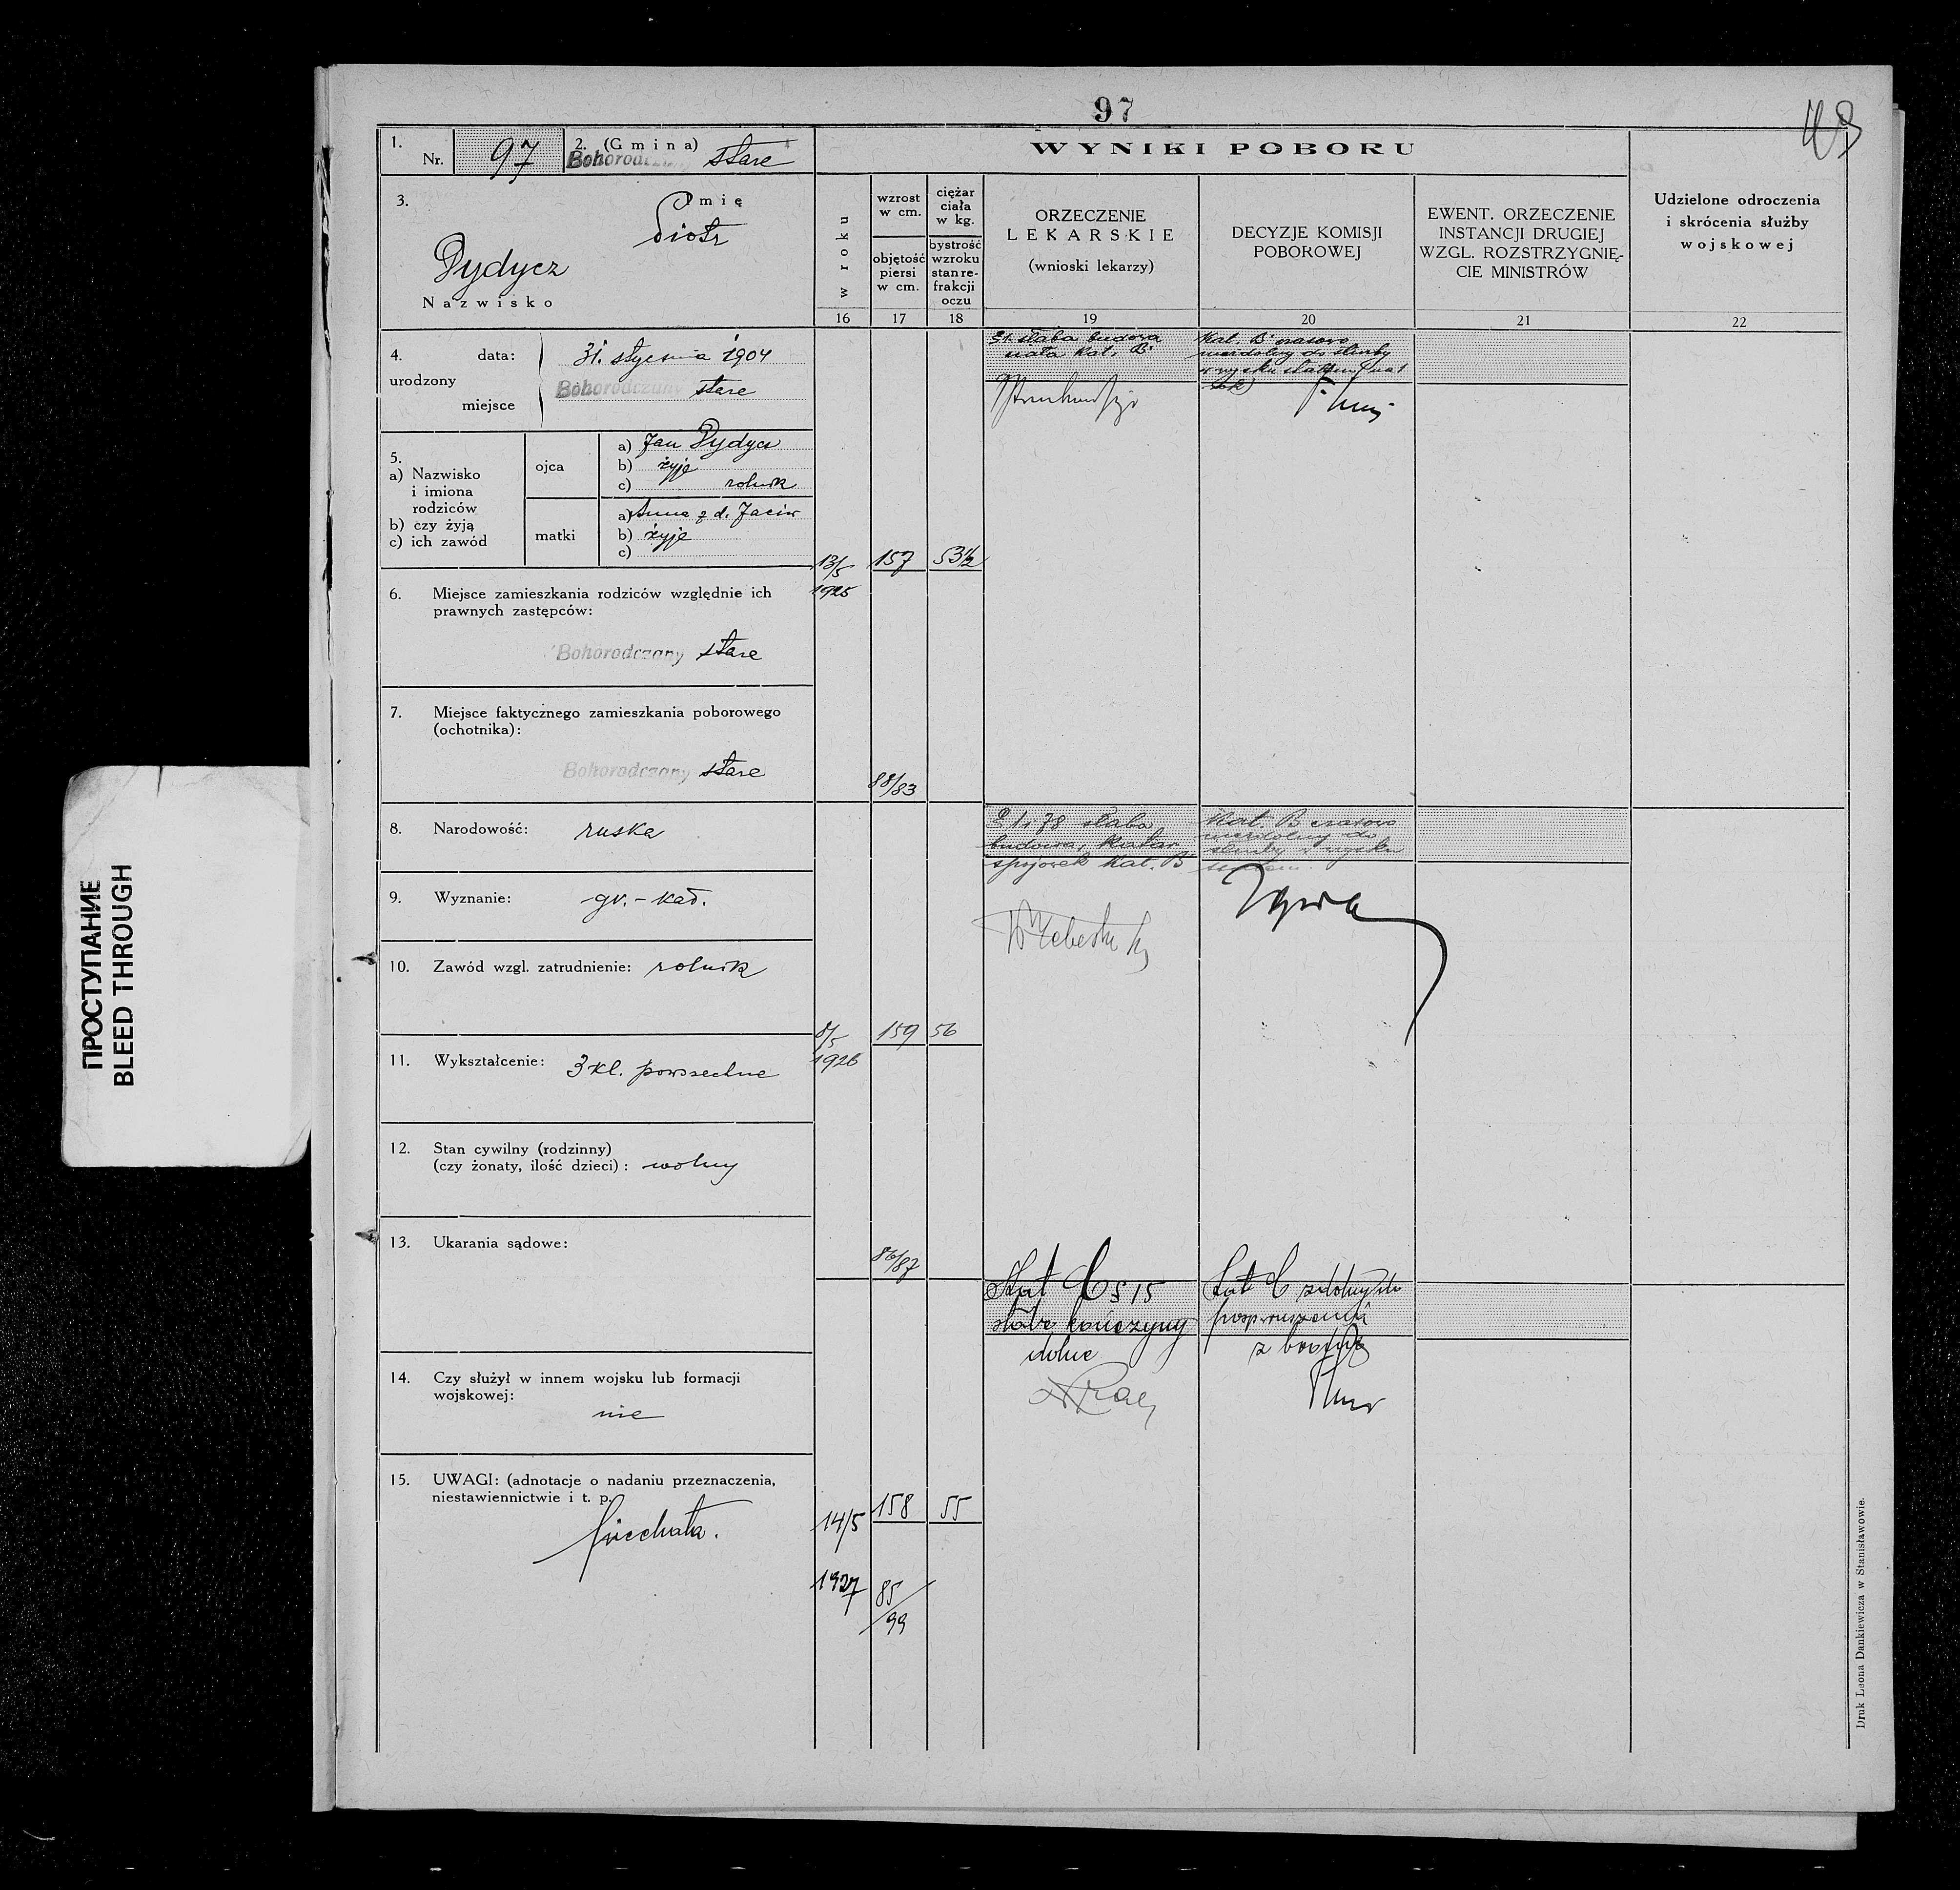 97
ПРОСТУПАНИЕ
BLEED THROUGH
1. Nr. 97
2. (Gmina) Bohorodczany stare
3. Imię
Piotr
Dydycz
Nazwisko
4. urodzony
data: 31. stycznia 1904
miejsce Bohorodczany stare
5.
a) Nazwisko
i imiona
rodziców
b) czy żyją
c) ich zawód
ojca
a) Jan Dydycz
b) żyje
c) rolnik
matki
a) Anna z d. Jaciw
b) żyje
c)
6. Miejsce zamieszkania rodziców względnie ich
prawnych zastępców:
Bohorodczany stare
7. Miejsce faktycznego zamieszkania poborowego
(ochotnika):
Bohorodczany stare
8. Narodowość: ruska
9. Wyznanie: gr.-kat.
10. Zawód wzgl. zatrudnienie: rolnik
11. Wykształcenie: 3 kl. powszechne
12. Stan cywilny (rodzinny)
(czy żonaty, ilość dzieci): wolny
13. Ukarania sądowe:
14. Czy służył w innem wojsku lub formacji
wojskowej:
nie
15. UWAGI: (adnotacje o nadaniu przeznaczenia,
niestawiennictwie i t. p.
piechota.
WYNIKI POBORU
w roku
wzrost
w cm.
objętość
piersi
w cm.
ciężar
ciała
w kg.
bystrość
wzroku
stan re-
frakcji
oczu
ORZECZENIE
LEKARSKIE
(wnioski lekarzy)
DECYZJE KOMISJI
POBOROWEJ
EWENT. ORZECZENIE
INSTANCJI DRUGIEJ
WZGL. ROZSTRZYGNIĘ-
CIE MINISTRÓW
Udzielone odroczenia
i skrócenia służby
wojskowej
16 17 18 19 20 21 22
13/5 157 53½
1925
88/83
słaba budowa
Kat. B
Kat. B czasowo
niezdolny do służby
8/5 159 56
1926
86/87
78 słaba
budowa,
spojówek Kat. B
Kat B czasowo
niezdolny do
służby w wojsku
14/5 158 55
1927
85/99
Kat C § 15
słabe kończyny
dolne
Kat C zdolny do
posp. ruszenia
z bronią
Druk Leona Dankiewicza w Stanisławowie.